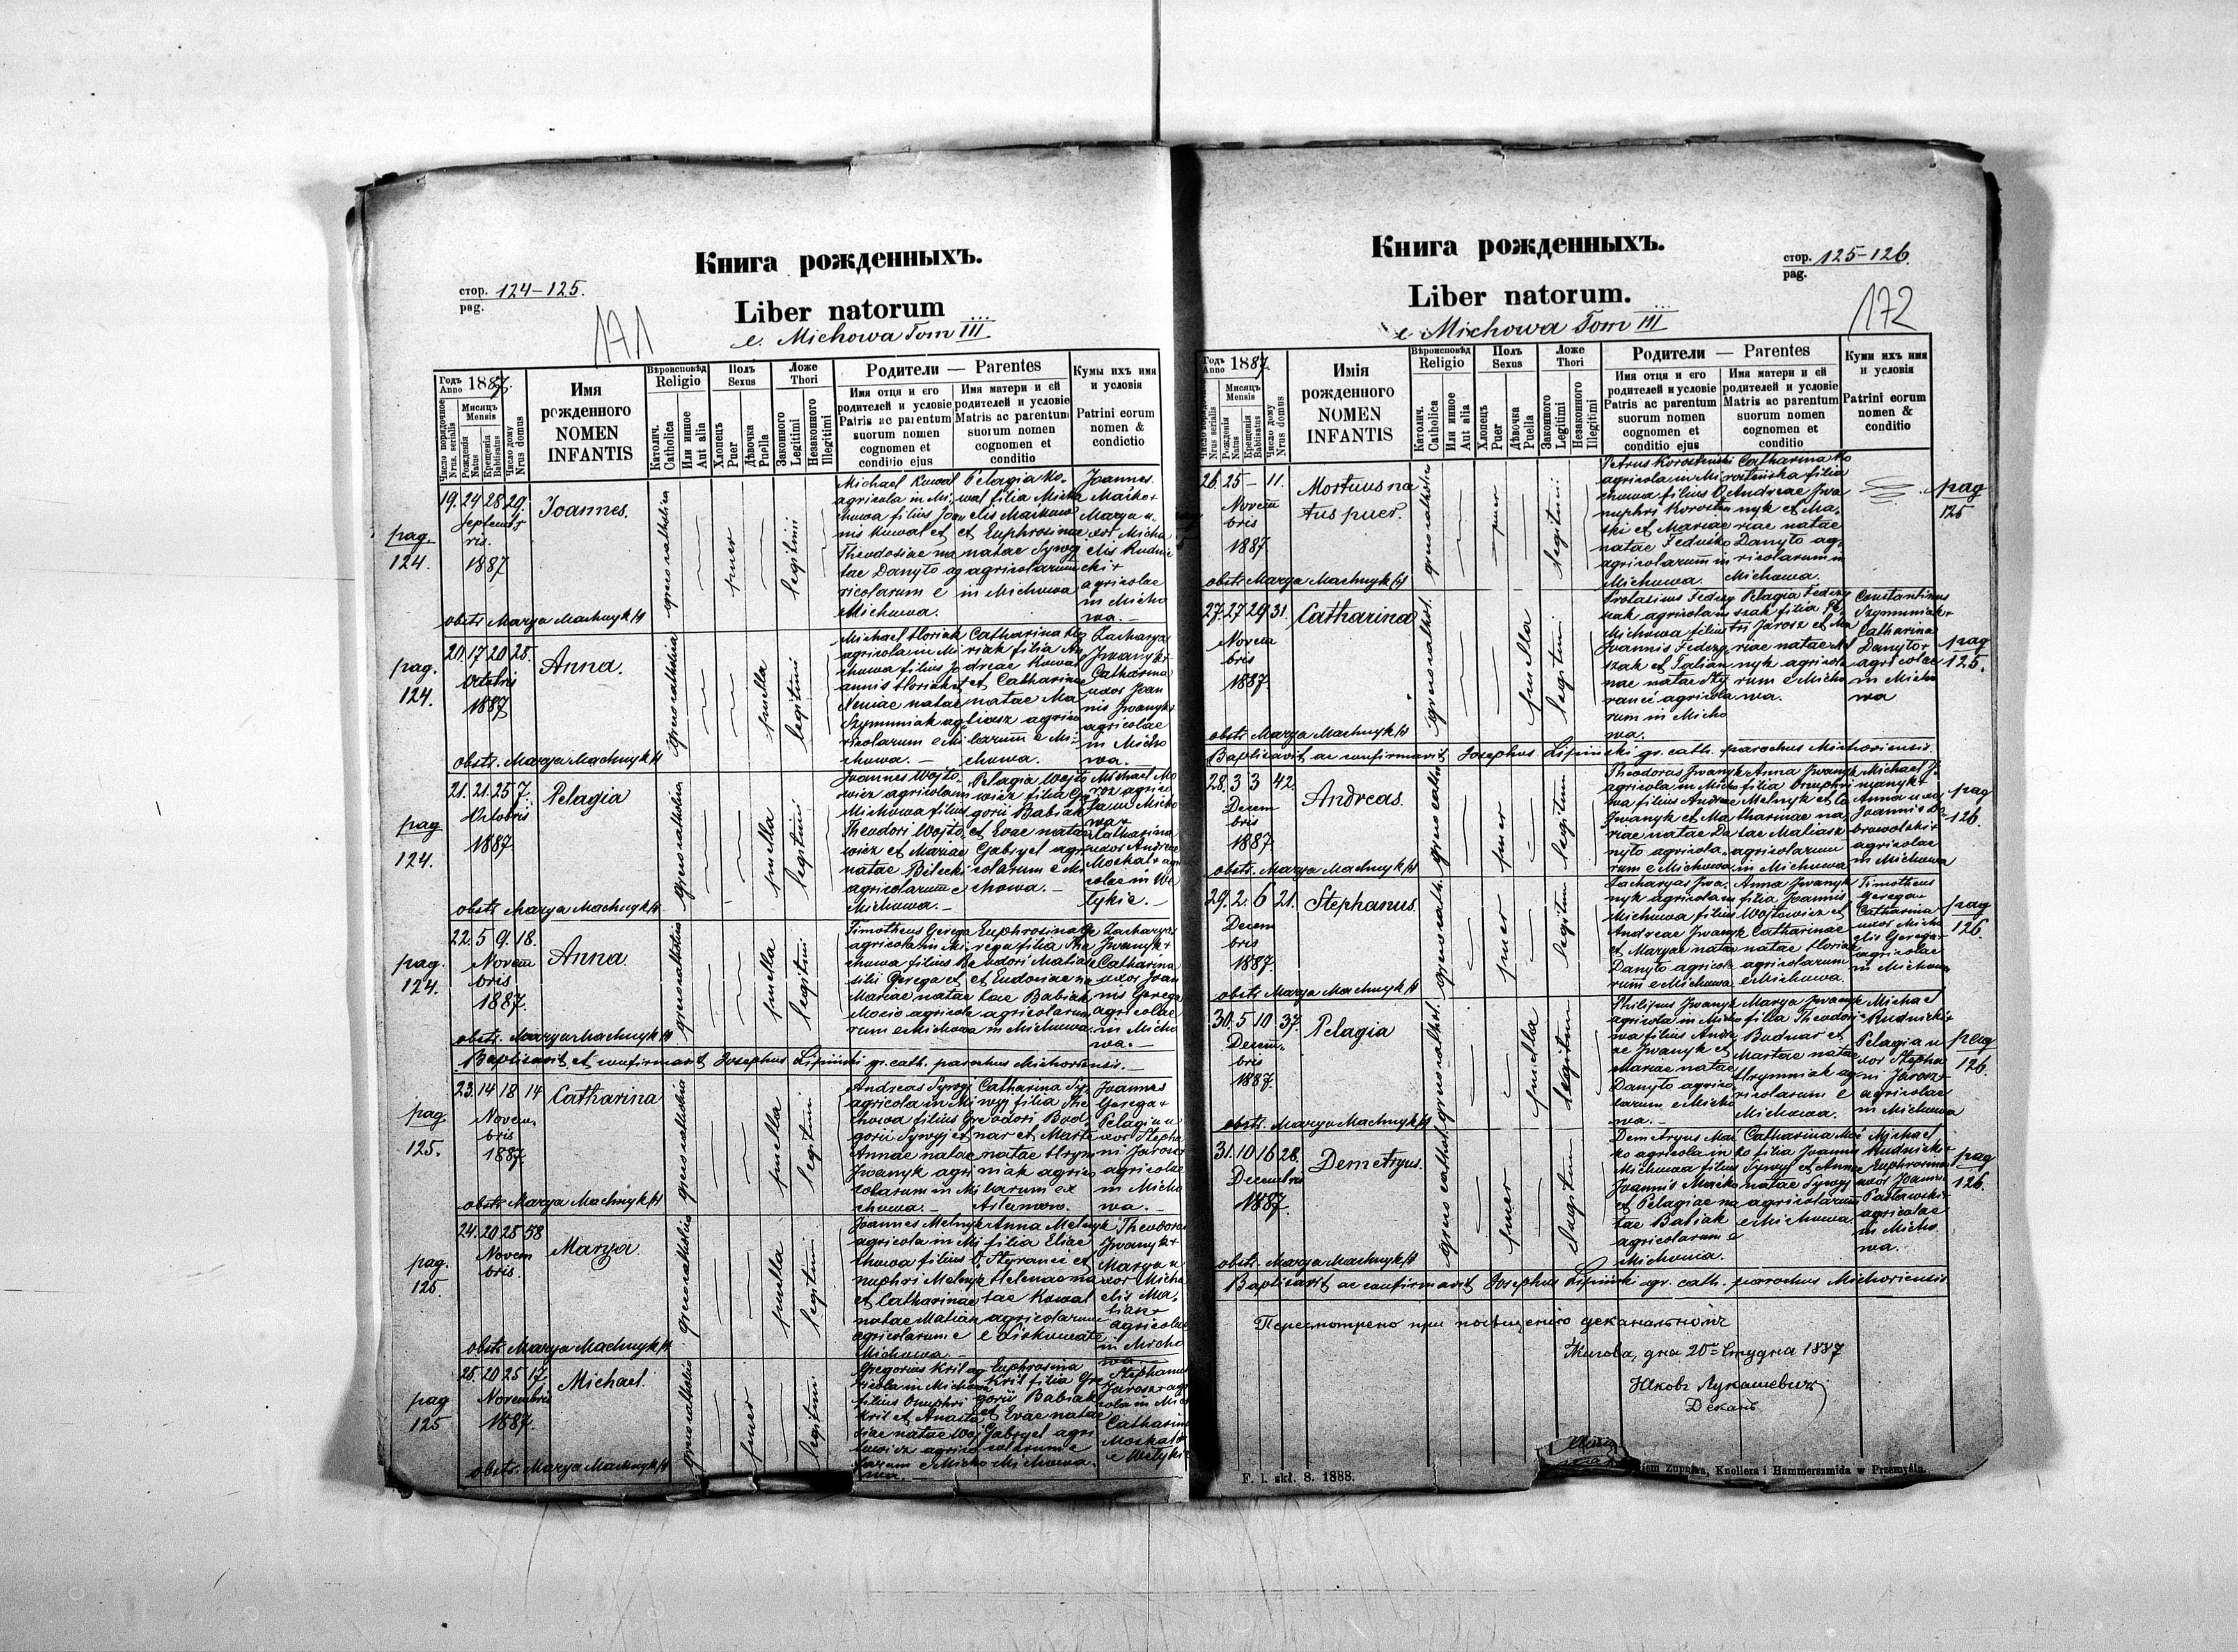 Книга рожденныхъ.
стор. 124–125.
pag.
171
Liber natorum
e. Michowa Tom III
Годъ Anno 1887.
Число порядочное Nrus. serialis
Мисяцъ Mensis
Рождения Natus
Крещения Babtisatus
Число дому Nrus domus
Имя рожденного NOMEN INFANTIS
Вѣроисповѣд Religio
Католич. Catholica
Или инное Aut alia
Полъ Sexus
Хлопецъ Puer
Дѣвочка Puella
Ложе Thori
Законного Legitimi
Незаконного Illegitimi
Родители — Parentes
Имя отця и его родителей и условіе
Patris ac parentum suorum nomen cognomen et conditio ejus
Имя матери и ей родителей и условіе
Matris ac parentum suorum nomen cognomen et conditio
Кумы ихъ имя и условія
Patrini eorum nomen & conditio
pag 124.
19. 24 28 29.
Septembris. 1887
Joannes.
greco catholica
puer
legitimi
Michael Kuwal
agricola in Mi
chowa filius Joan
nis Kuwal et
Theodosiae na
tae Danyto ag
ricolarum e
Michowa.
Pelagia Ko
wal filia Micha
elis Maćkowo
et Euphrosinae
natae Syrog
agricolarum
in Michowa
Joannes
Maćko+
Marya u
xor Micha
elis Rudni
cki+
agricolae
in Micho
wa.—
obstr Marya Machnyk
pag. 124.
20. 17 20 25.
Octobris 1887
Anna.
puella
legitimi
Michael Horiak
agricola in Mi
chowa filius Jo
annis Horiak et
Xeniae natae
Szymniak ag
ricolarum e Mi
chowa.—
Catharina Ho
riak filia An
dreae Kowal
et Catharinae
natae Ma
liasz agrico
larum e Mi
chowa.
Zacharya
Jwanyk+
Catharina
uxor Joan
nis Jwanyk+
agricolae
in Micho
wa.
obstr. Marya Machnyk
pag 124.
21. 21. 25 7.
Octobris 1887
Pelagia
puella
legitimi
Joannes Wojto
wicz agricola in
Michowa filius
Theodori Wojto
wicz et Mariae
natae Bilecki
agricolarum e
Michowa.—
Pelagia Wojto
wicz filia Gre
gorii Babiak
et Evae natae
Gabryel agri
colarum e Mi
chowa.—
Michael Mo
roz agrico
la in Micho
wa+
Catharina
uxor Andreae
Moskal+ agri
colae in We
tykie.—
obstr Marya Machnyk
pag. 124.
22. 5 9. 18.
Novembris 1887.
Anna.
puella
legitimi
Timotheus Gerega
agricola in Mi
chowa filius Ba
silii Gerega et
Mariae natae
Mocio agricola
rum e Michowa
Euphrosina Ge
rega filia The
odori Maliasz
et Eudociae na
tae Babiak
agricolarum
in Michowa.
Zacharyas
Jwanyk+
Catharina
uxor Joan
nis Gerega
agricolae
in Micho
wa.—
obstr. Marya Machnyk
Baptisavit et confirmavit Josephus Lipiński gr. cath. parochus Michoviensis.—
pag 125.
23. 14 18 14
Novembris 1887.
Catharina
puella
legitimi
Andreas Syrogj
agricola in Mi
chowa filius Gre
gorii Syrogj et
Annae natae
Jwanyk agri
colarum in Mi
chowa.—
Catharina Sy
rogj filia The
odori Bod
nar et Marta
natae Hrym
niak agrico
larum ex
Joannes
Gerega+
Pelagia u
xor Stepha
ni Jarosz
agricolae
in Micho
wa.—
obstr. Marya Machnyk
pag. 125.
24. 20 25 58
Novembris.
Marya
puella
legitimi
Joannes Melnyk
agricola in Mi
chowa filius O
nuphri Melnyk
et Catharinae
natae Maliasz
agricolarum e
Michowa.—
Anna Melnyk
filia Eliae
Styranci et
Helenae na
tae Kowal
agricolarum
e Liskowate
Theodorus
Jwanyk+
Marya u
xor Micha
elis Ma
liasz+
agricolae
in Micho
wa—
obstr. Marya Machnyk
pag 125
25. 20 25 17.
Novembris 1887.
Michael.
puer
legitimi
Gregorius Kril ag
ricola in Michowa
filius Onuphri
Kril et Anasta
siae natae Woj
towicz agrico
larum e Micho
wa.
Euphrosina
Kril filia Gre
gorii Babiak
et Evae natae
Gabryel agri
colarum e
Michowa.
Stephanus
Jarosz+ agri
cola in Mic
Catharina
Moskal+
e Wetyki
obstr. Marya Machnyk
Книга рожденныхъ.
стор. 125–126.
pag.
172
Liber natorum.
e Michowa Tom III
Годъ Anno 1887.
Мисяцъ Mensis
Рождения Natus
Крещения Babtisatus
Число дому Nrus domus
Имія рожденного NOMEN INFANTIS
Вѣроисповѣд Religio
Католич. Catholica
Или инное Aut alia
Полъ Sexus
Хлопецъ Puer
Дѣвочка Puella
Ложе Thori
Законного Legitimi
Незаконного Illegitimi
Родители — Parentes
Имя отця и его родителей и условіе
Patris ac parentum suorum nomen cognomen et conditio ejus
Имя матери и ей родителей и условіе
Matris ac parentum suorum nomen cognomen et conditio
Куми ихъ имя и условія
Patrini eorum nomen & conditio
26. 25 — 11.
Novembris 1887
Mortuus na
tus puer.
puer
legitimi
Petrus Korostenski
agricola in Mi
chowa filius O
nuphri Korosten
ski et Mariae
natae Fedusko
agricolarum in
Michowa.
Catharina Ko
rosteńska filia
Andreae Jwa
nyk et Ma
riae natae
Danyto ag
ricolarum in
Michowa.
pag 125
obstr Marya Machnyk
27. 27 29 31.
Novembris 1887.
Catharina
puella
legitimi
Protasius Fedasz
szak agricola in
Michowa filius
Joannis Fedasz
szak et Talian
nae natae Sty
ranci agricola
rum in Micho
wa.
Pelagia Fedasz
szak filia Pe
tri Jarosz et Ma
riae natae Mel
nyk agricola
rum e Micho
wa.
Constantinus
Szymniak+
Catharina
Danyto+
agricolae
in Micho
wa
pag 125.
obstr. Marya Machnyk
Baptisavit ac confirmavit Josephus Lipiński gr. cath. parochus Michoviensis.
28. 3 3 42.
Decembris 1887
Andreas.
puer
legitimi
Theodorus Jwanyk
agricola in Micho
wa filius Andreae
Jwanyk et Ma
riae natae Da
nyto agricola
rum e Michowa
Anna Jwanyk
filia Onuphri
Melnyk et Ca
tharinae na
tae Maliasz
agricolarum
in Michowa
Michael J
wanyk+
Anna uxor
Joannis Do
browolski+
agricolae
in Michowa
pag 126.
obstr. Marya Machnyk
29. 2. 6 21.
Decembris 1887.
Stephanus.
puer
legitimi
Zacharyas Jwa
nyk agricola in
Michowa filius
Andreae Jwanyk
et Maryae natae
Danyto agricola
rum e Michowa
Anna Jwanyk
filia Joannis
Wojtowicz et
Catharinae
natae Horiak
agricolarum
e Michowa.
Timotheus
Gerega+
Catharina
uxor Micha
elis Gerega+
agricolae
in Michowa
pag 126.
obstr. Marya Machnyk
30. 5 10 37.
Decembris 1887.
Pelagia
puella
legitimi
Philipus Jwanyk
agricola in Micho
wa filius Andre
ae Jwanyk et
Mariae natae
Danyto agrico
larum e Micho
wa.—
Marya Jwanyk
filia Theodori
Bodnar et
Martae natae
Hrymniak ag
ricolarum e
Michowa.
Michael
Rudnicki+
Pelagia u
xor Stepha
ni Jarosz+
agricolae
in Michowa
pag 126.
obstr. Marya Machnyk
31. 10 16 28.
Decembris 1887.
Demetryus.
puer
legitimi
Demetryus Mać
ko agricola in
Michowa filius
Joannis Maćko
et Pelagiae na
tae Babiak
agricolarum e
Michowia.
Catharina Mać
ko filia Joannis
Syrogj et Annae
natae Syrogj
agricolarum
e Michowa.
Michael
Rudnicki+
Euphrosina
uxor Joannis
Pastawski+
agricolae
in Micho
wa.
pag 126.
obstr. Marya Machnyk
Baptisavit ac confirmavit Josephus Lipiński gr. cath. parochus Michoviensis
Пересмотрено при посѣщенію деканальномъ
дня 20го Студня 1887
Яковъ Лукашевичъ
Деканъ
F. l. skł. 8. 1888.
Zupnika, Knollera i Hammerszmida w Przemyślu.